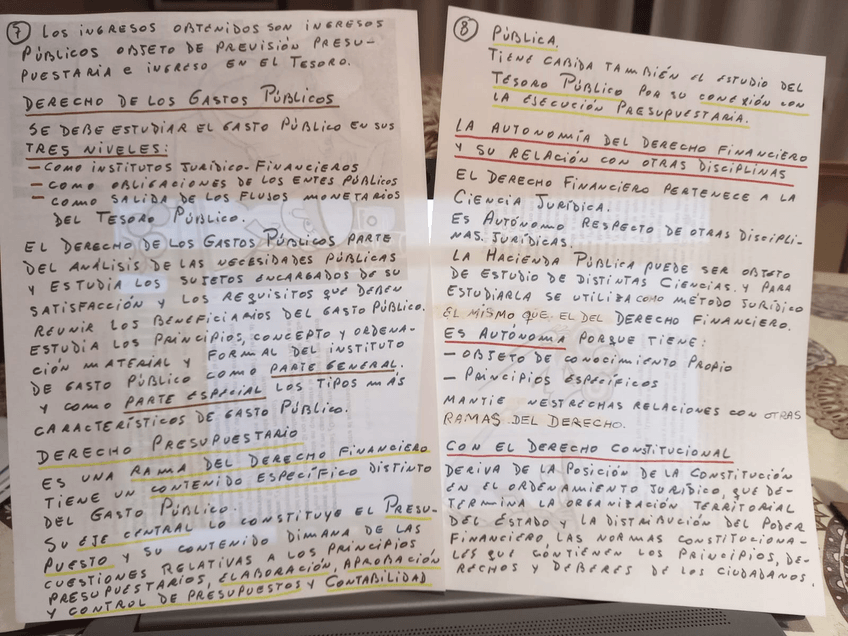 7 LOS INGRESOS OBTENIDOS SON INGRESOS
PÚBLICOS OBJETO DE PREVISIÓN PRESU-
PUESTARIA E INGRESO EN EL TESORO.
DERECHO DE LOS GASTOS PÚBLICOS
SE DEBE ESTUDIAR EL GASTO PÚBLICO EN SUS
TRES NIVELES:
- COMO INSTITUTOS JURÍDICO-FINANCIEROS
- COMO OBLIGACIONES DE LOS ENTES PÚBLICOS
- COMO SALIDA DE LOS FLUJOS MONETARIOS
DEL TESORO PÚBLICO.
EL DERECHO DE LOS GASTOS PÚBLICOS PARTE
DEL ANÁLISIS DE LAS NECESIDADES PÚBLICAS
Y ESTUDIA LOS SUJETOS ENCARGADOS DE SU
SATISFACCIÓN Y LOS REQUISITOS QUE DEBEN
REUNIR LOS BENEFICIARIOS DEL GASTO PÚBLICO.
ESTUDIA LOS PRINCIPIOS, CONCEPTO Y ORDENA-
CIÓN MATERIAL Y FORMAL DEL INSTITUTO
DE GASTO PÚBLICO COMO PARTE GENERAL.
Y COMO PARTE ESPECIAL LOS TIPOS MÁS
CARACTERÍSTICOS DE GASTO PÚBLICO.
DERECHO PRESUPUESTARIO
ES UNA RAMA DEL DERECHO FINANCIERO
TIENE UN CONTENIDO ESPECÍFICO DISTINTO
DEL GASTO PÚBLICO.
SU EJE CENTRAL LO CONSTITUYE EL PRESU-
PUESTO Y SU CONTENIDO DIMANA DE LAS
CUESTIONES RELATIVAS A LOS PRINCIPIOS
PRESUPUESTARIOS, ELABORACIÓN, APROBACIÓN
Y CONTROL DE PRESUPUESTOS Y CONTABILIDAD
8 PÚBLICA.
TIENE CABIDA TAMBIÉN EL ESTUDIO DEL
TESORO PÚBLICO POR SU CONEXIÓN CON
LA EJECUCIÓN PRESUPUESTARIA.
LA AUTONOMÍA DEL DERECHO FINANCIERO
Y SU RELACIÓN CON OTRAS DISCIPLINAS
EL DERECHO FINANCIERO PERTENECE A LA
CIENCIA JURÍDICA.
ES AUTÓNOMO RESPECTO DE OTRAS DISCIPLI-
NAS JURÍDICAS.
LA HACIENDA PÚBLICA PUEDE SER OBJETO
DE ESTUDIO DE DISTINTAS CIENCIAS. Y PARA
ESTUDIARLA SE UTILIZA COMO MÉTODO JURÍDICO
EL MISMO QUE EL DEL DERECHO FINANCIERO.
ES AUTÓNOMA PORQUE TIENE:
- OBJETO DE CONOCIMIENTO PROPIO
- PRINCIPIOS ESPECÍFICOS
MANTIE NESTRECHAS RELACIONES CON OTRAS
RAMAS DEL DERECHO.
CON EL DERECHO CONSTITUCIONAL
DERIVA DE LA POSICIÓN DE LA CONSTITUCIÓN
EN EL ORDENAMIENTO JURÍDICO, QUE DE-
TERMINA LA ORGANIZACIÓN TERRITORIAL
DEL ESTADO Y LA DISTRIBUCIÓN DEL PODER
FINANCIERO, LAS NORMAS CONSTITUCIONA-
LES QUE CONTIENEN LOS PRINCIPIOS, DE-
RECHOS Y DEBERES DE LOS CIUDADANOS.